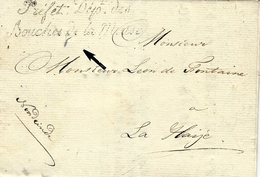 Préfet Dép. des
Bouches de la Meuse
Monsieur
Monsieur Leon de Fontaine
à
La Haije